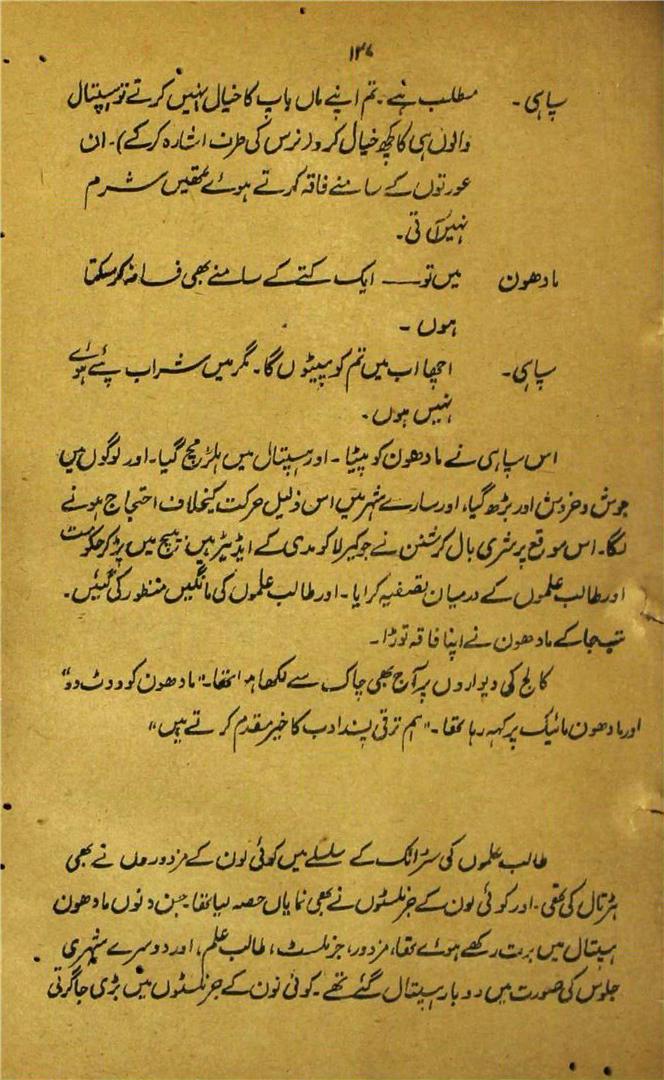 ۱۳۷
سپاہی۔ مطلب ہے۔ تم اپنے ماں باپ کا خیال نہیں کرتے تو ہسپتال
والوں ہی کا کچھ خیال کرو (نرس کی طرف اشارہ کرکے)۔ ان
عورتوں کے سامنے فاقہ کرتے ہوئے تمھیں شرم
نہیں آتی۔
مادھون میں تو ــــ ایک کتے کے سامنے بھی فاقہ کر سکتا
ہوں ۔
سپاہی۔ اچھا اب میں تم کو پیٹوں گا۔ مگر میں شراب پئے ہوئے
نہیں ہوں۔
اس سپاہی نے مادھون کو پیٹا ۔ اور ہسپتال میں ہلڑ مچ گیا۔ اور لوگوں میں
جوش و خروش اور بڑھ گیا، اور سارے شہر میں اس ذلیل حرکت کیخلاف احتجاج ہونے
لگا۔ اس موقع پر شری بال کرشنن نے جو کیرلا کومدی کے ایڈیٹر ہیں، بیچ میں پڑ کر حکومت
اور طالب علموں کے درمیان تصفیہ کرایا ۔ اور طالب علموں کی مانگیں منظور کی گئیں۔
تب جا کے مادھون نے اپنا فاقہ توڑا۔
کالج کی دیواروں پر آج بھی چاک سے لکھا ہوا تھا۔ "مادھون کو ووٹ دو"
اور مادھون مائیک پر کہہ رہا تھا ۔ "ہم ترقی پسند ادب کا خیر مقدم کرتے ہیں"
طالب علموں کی سٹرائک کے سلسلے میں کوئی لون کے مزدوروں نے بھی
ہڑتال کی تھی ۔ اور کوئی لون کے جرنلسٹوں نے بھی نمایاں حصہ لیا تھا۔ جن دنوں مادھون
ہسپتال میں برت رکھے ہوئے تھا، مزدور، جرنلسٹ، طالب علم، اور دوسرے شہری
جلوس کی صورت میں دوبار ہسپتال گئے تھے ۔ کوئی لون کے جرنلسٹوں میں بڑی جاگرتی